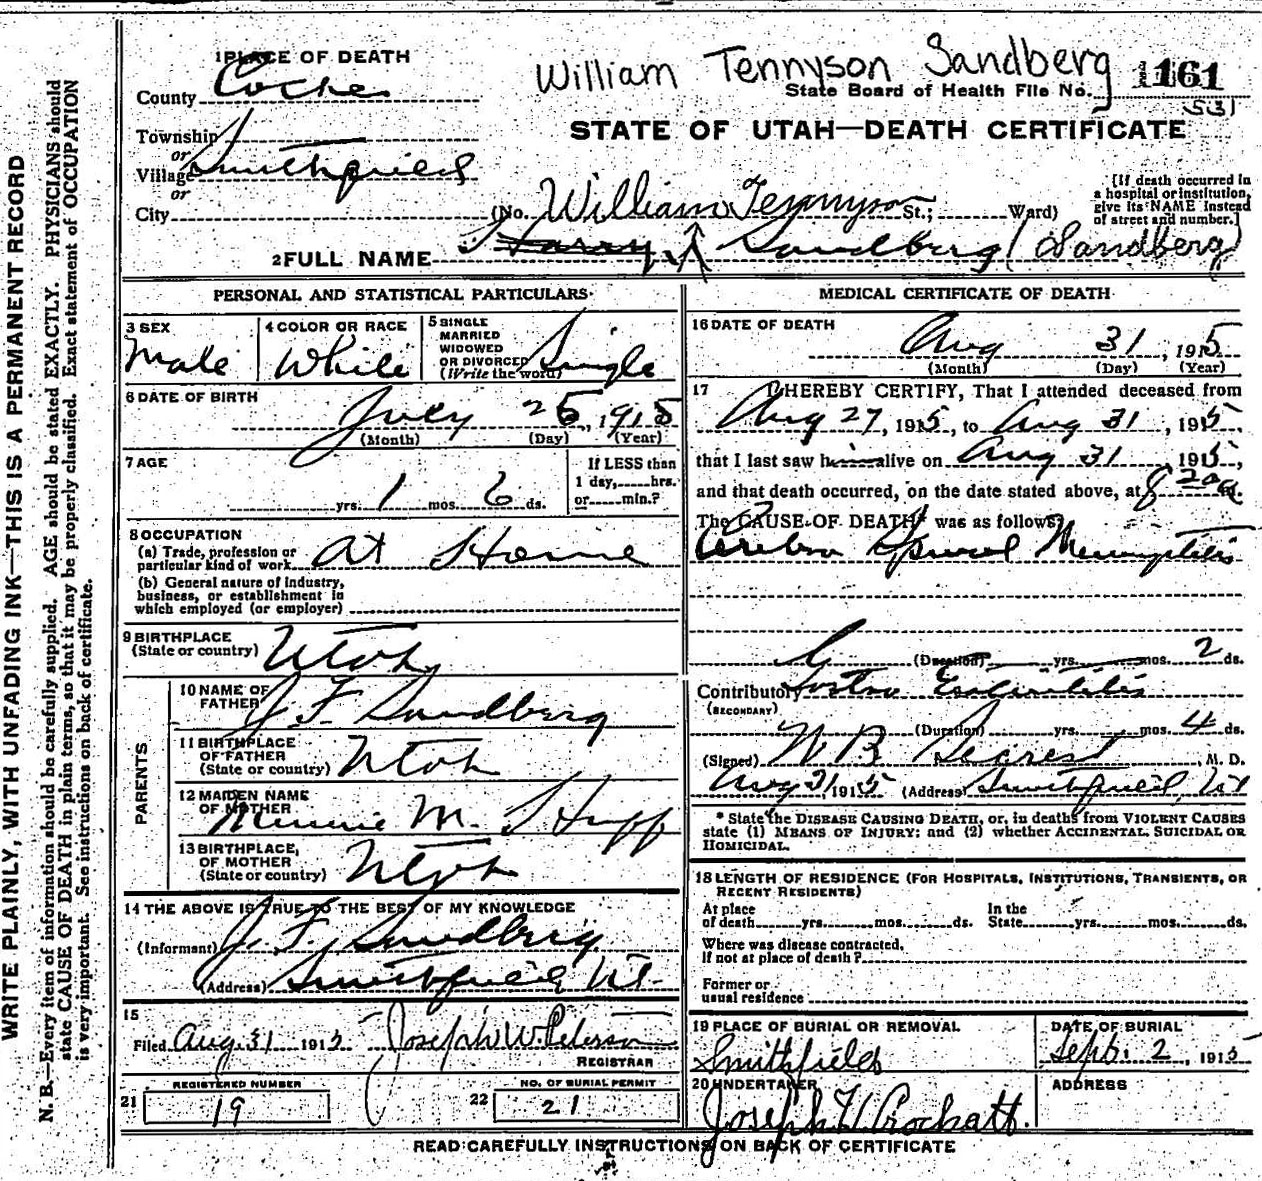 WRITE PLAINLY, WITH UNFADING INK—THIS IS A PERMANENT RECORD
N. B.—Every item of information should be carefully supplied. AGE should be stated EXACTLY. PHYSICIANS should
state CAUSE OF DEATH in plain terms, so that it may be properly classified. Exact statement of OCCUPATION
is very important. See instructions on back of certificate.
1 PLACE OF DEATH
County Cache
William Tennyson Sandberg
State Board of Health File No. 161
531
STATE OF UTAH—DEATH CERTIFICATE
Township
or
Village Smithfield
or
City (No. St.; Ward)
[If death occurred in
a hospital or institution,
give its NAME instead
of street and number.]
William Tennyson
2 FULL NAME Harry Sandberg (Sandberg)
PERSONAL AND STATISTICAL PARTICULARS
3 SEX Male
4 COLOR OR RACE White
5 SINGLE
MARRIED
WIDOWED
OR DIVORCED
(Write the word) Single
6 DATE OF BIRTH
July 25, 1915
(Month) (Day) (Year)
7 AGE
yrs. 1 mos. 6 ds.
If LESS than
1 day, hrs.
or min.?
8 OCCUPATION
(a) Trade, profession or
particular kind of work At Home
(b) General nature of industry,
business, or establishment in
which employed (or employer)
9 BIRTHPLACE
(State or country) Utah
PARENTS
10 NAME OF
FATHER J. F. Sandberg
11 BIRTHPLACE
OF FATHER
(State or country) Utah
12 MAIDEN NAME
OF MOTHER Minnie M. Hupp
13 BIRTHPLACE
OF MOTHER
(State or country) Utah
14 THE ABOVE IS TRUE TO THE BEST OF MY KNOWLEDGE
(Informant) J. F. Sandberg
(Address) Smithfield Ut.
15
Filed Aug. 31 1915 Joseph W. Peterson
REGISTRAR
21 REGISTERED NUMBER
19
22 NO. OF BURIAL PERMIT
21
MEDICAL CERTIFICATE OF DEATH
16 DATE OF DEATH
Aug 31, 1915
(Month) (Day) (Year)
17 I HEREBY CERTIFY, That I attended deceased from
Aug 27, 1915, to Aug 31, 1915
that I last saw him alive on Aug 31 1915,
and that death occurred, on the date stated above, at 8 20 a m.
The CAUSE OF DEATH* was as follows:
Cerebro Spinal Meningitis
(Duration) yrs. mos. 2 ds.
Contributory Gastro Enteritis
(SECONDARY)
(Duration) yrs. mos. 4 ds.
(Signed) W B, M. D.
Aug 31, 1915 (Address) Smithfield, Ut
* State the DISEASE CAUSING DEATH, or, in deaths from VIOLENT CAUSES
state (1) MEANS OF INJURY; and (2) whether ACCIDENTAL, SUICIDAL OR
HOMICIDAL.
18 LENGTH OF RESIDENCE (FOR HOSPITALS, INSTITUTIONS, TRANSIENTS, OR
RECENT RESIDENTS)
At place
of death yrs. mos. ds. In the
State yrs. mos. ds.
Where was disease contracted,
if not at place of death?
Former or
usual residence
19 PLACE OF BURIAL OR REMOVAL
Smithfield
DATE OF BURIAL
Sept. 2, 1915
20 UNDERTAKER
Joseph H
ADDRESS
READ CAREFULLY INSTRUCTIONS ON BACK OF CERTIFICATE